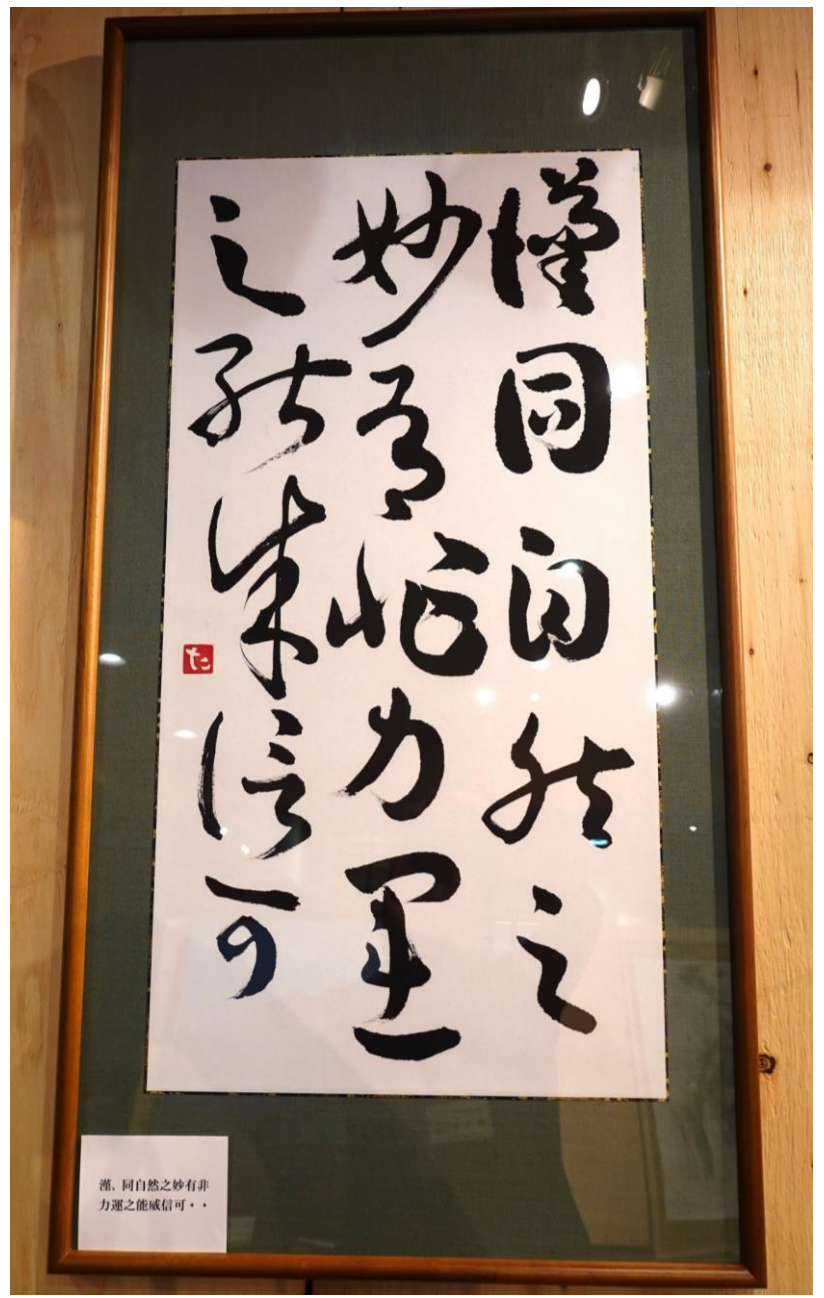 漢同自然之
妙有非力運
之能成信可
た
漢、同自然之妙有非
力運之能威信可・・